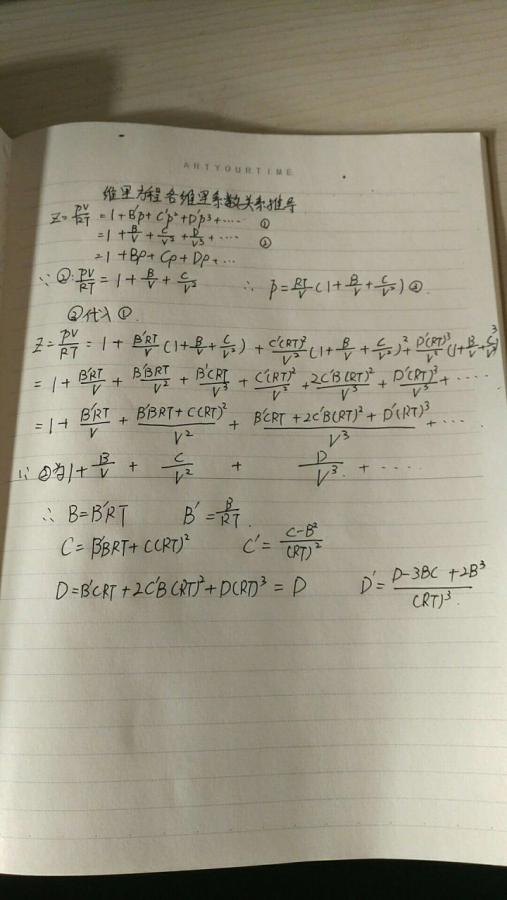 ARTYOURTIME
维里方程各维里系数关系推导
Z=\frac{pV}{RT} = 1+B'p+C'p²+D'p³+···· ①
=1+\frac{B}{V}+\frac{C}{V²}+\frac{D}{V³}+···· ②
=1+Bρ+Cρ+Dρ+···
∵ ②:\frac{pV}{RT}=1+\frac{B}{V}+\frac{C}{V²} ∴ p=\frac{RT}{V}(1+\frac{B}{V}+\frac{C}{V²})
代入①.
Z=\frac{pV}{RT}=1+\frac{B'RT}{V}(1+\frac{B}{V}+\frac{C}{V²})+\frac{C'(RT)²}{V²}(1+\frac{B}{V}+\frac{C}{V²})²+\frac{D'(RT)³}{V³}(1+\frac{B}{V}+\frac{C}{V²})³
=1+\frac{B'RT}{V}+\frac{B'BRT}{V²}+\frac{B'CRT}{V³}+\frac{C'(RT)²}{V²}+\frac{2C'B(RT)²}{V³}+\frac{D'(RT)³}{V³}+····
=1+\frac{B'RT}{V}+\frac{B'BRT+C(RT)²}{V²}+\frac{B'CRT+2C'B(RT)²+D'(RT)³}{V³}+···
∵ ②为1+\frac{B}{V}+\frac{C}{V²}+\frac{D}{V³}+····
∴ B=B'RT B'=\frac{B}{RT}.
C=B'BRT+C(RT)² C'=\frac{C-B²}{(RT)²}
D=B'CRT+2C'B(RT)²+D(RT)³=D D'=\frac{D-3BC+2B³}{(RT)³}.